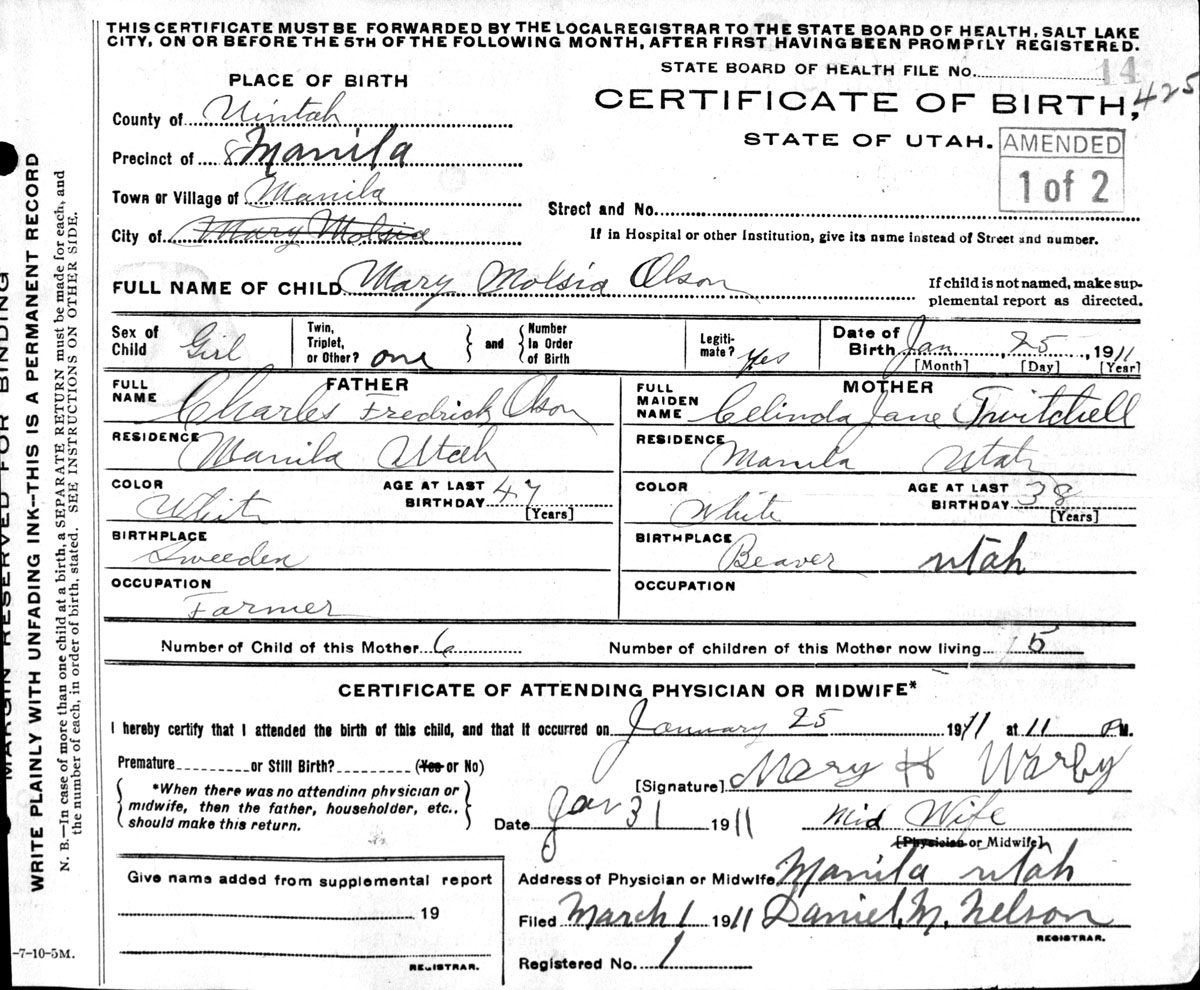 THIS CERTIFICATE MUST BE FORWARDED BY THE LOCAL REGISTRAR TO THE STATE BOARD OF HEALTH, SALT LAKE
CITY, ON OR BEFORE THE 5TH OF THE FOLLOWING MONTH, AFTER FIRST HAVING BEEN PROMPTLY REGISTERED.
STATE BOARD OF HEALTH FILE No. 14
PLACE OF BIRTH
CERTIFICATE OF BIRTH, 425
STATE OF UTAH.
AMENDED
1 of 2
County of Uintah
Precinct of 8 Manila
Town or Village of Manila
City of Mary Molsia
Street and No.
If in Hospital or other Institution, give its name instead of Street and number.
FULL NAME OF CHILD Mary Molsia Olson
If child is not named, make sup-
plemental report as directed.
Sex of Child Girl
Twin, Triplet, or Other? one
and
Number In Order of Birth
Legiti-mate? Yes
Date of Birth Jan, 25, 1911
[Month] [Day] [Year]
FATHER
FULL NAME Charles Fredrick Olson
RESIDENCE Manila Utah
COLOR White
AGE AT LAST BIRTHDAY 47 [Years]
BIRTHPLACE Sweeden
OCCUPATION Farmer
MOTHER
FULL MAIDEN NAME Celinda Jane Twitchell
RESIDENCE Manila Utah
COLOR White
AGE AT LAST BIRTHDAY 38 [Years]
BIRTHPLACE Beaver utah
OCCUPATION
Number of Child of this Mother 6
Number of children of this Mother now living 5
CERTIFICATE OF ATTENDING PHYSICIAN OR MIDWIFE*
I hereby certify that I attended the birth of this child, and that it occurred on January 25 1911 at 11 P M.
Premature or Still Birth? (Yes or No)
*When there was no attending physician or
midwife, then the father, householder, etc.,
should make this return.
[Signature] Mary H Warby
Date Jan 31 1911
Mid Wife
[Physician or Midwife]
Give name added from supplemental report
19
REGISTRAR.
Address of Physician or Midwife Manila utah
Filed March 1 1911 Daniel M. Nelson
REGISTRAR.
Registered No. 1
-7-10-5M.
MARGIN RESERVED FOR BINDING
WRITE PLAINLY WITH UNFADING INK--THIS IS A PERMANENT RECORD
N. B.—In case of more than one child at a birth, a SEPARATE RETURN must be made for each, and
the number of each, in order of birth, stated. SEE INSTRUCTIONS ON OTHER SIDE.